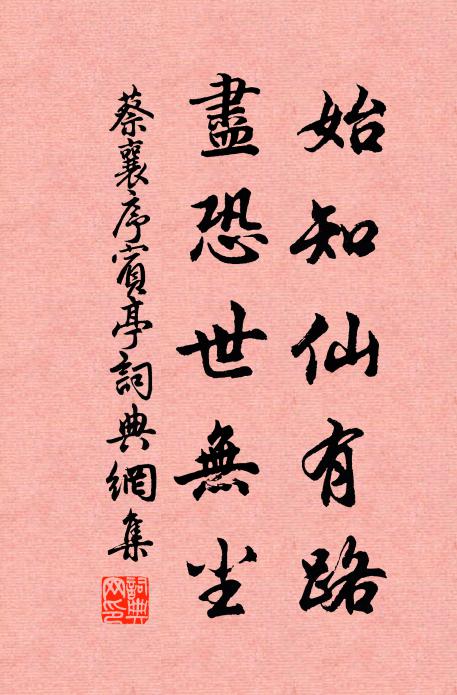 始知仙有路
盡恐世無塵
蔡襄序賓亭詞典網集
詞典網印